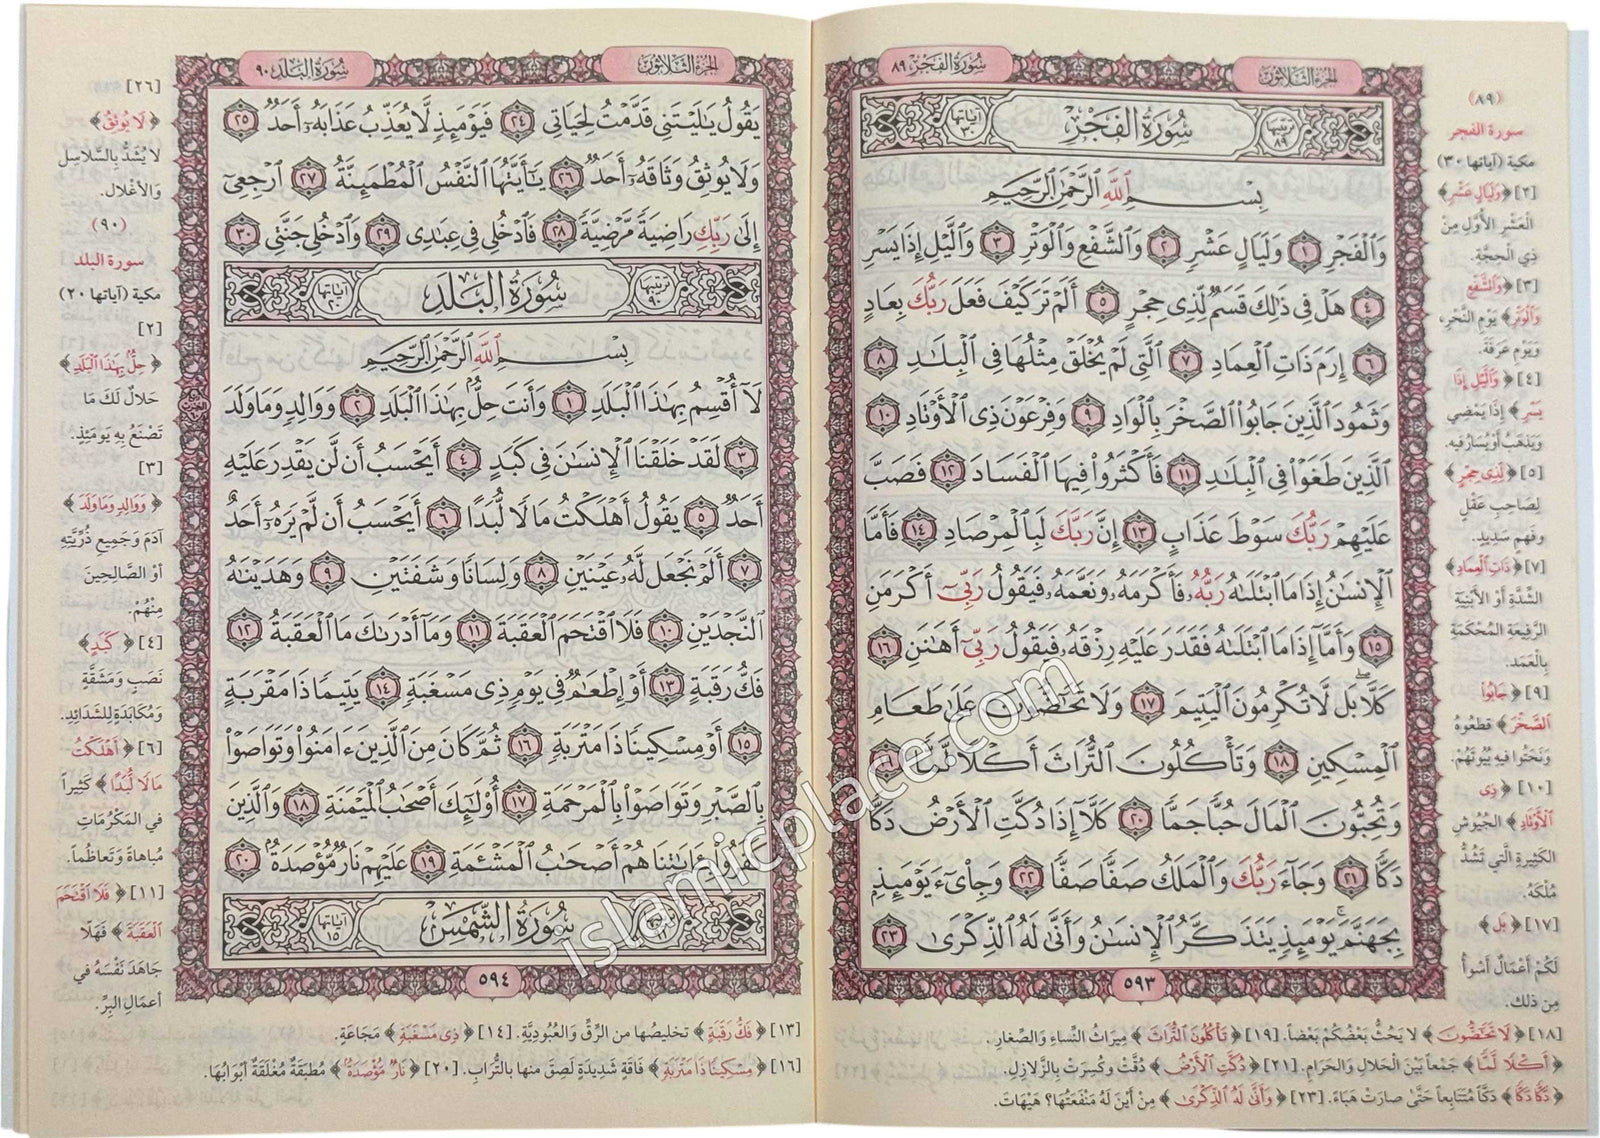 الجزء الثلاثون
سورة الفجر ٨٩
ترتيبها ٨٩
سُورَةُ الفَجْرِ
آياتها ٣٠
بِسْمِ ٱللَّهِ ٱلرَّحْمَٰنِ ٱلرَّحِيمِ
وَٱلْفَجْرِ ١ وَلَيَالٍ عَشْرٍ ٢ وَٱلشَّفْعِ وَٱلْوَتْرِ ٣ وَٱلَّيْلِ إِذَا يَسْرِ
٤ هَلْ فِى ذَٰلِكَ قَسَمٌ لِّذِى حِجْرٍ ٥ أَلَمْ تَرَ كَيْفَ فَعَلَ رَبُّكَ بِعَادٍ
٦ إِرَمَ ذَاتِ ٱلْعِمَادِ ٧ ٱلَّتِى لَمْ يُخْلَقْ مِثْلُهَا فِى ٱلْبِلَٰدِ ٨
وَثَمُودَ ٱلَّذِينَ جَابُوا۟ ٱلصَّخْرَ بِٱلْوَادِ ٩ وَفِرْعَوْنَ ذِى ٱلْأَوْتَادِ ١٠
ٱلَّذِينَ طَغَوْا۟ فِى ٱلْبِلَٰدِ ١١ فَأَكْثَرُوا۟ فِيهَا ٱلْفَسَادَ ١٢ فَصَبَّ
عَلَيْهِمْ رَبُّكَ سَوْطَ عَذَابٍ ١٣ إِنَّ رَبَّكَ لَبِٱلْمِرْصَادِ ١٤ فَأَمَّا
ٱلْإِنسَٰنُ إِذَا مَا ٱبْتَلَىٰهُ رَبُّهُۥ فَأَكْرَمَهُۥ وَنَعَّمَهُۥ فَيَقُولُ رَبِّىٓ أَكْرَمَنِ
١٥ وَأَمَّآ إِذَا مَا ٱبْتَلَىٰهُ فَقَدَرَ عَلَيْهِ رِزْقَهُۥ فَيَقُولُ رَبِّىٓ أَهَٰنَنِ ١٦
كَلَّا ۖ بَل لَّا تُكْرِمُونَ ٱلْيَتِيمَ ١٧ وَلَا تَحَٰٓضُّونَ عَلَىٰ طَعَامِ
ٱلْمِسْكِينِ ١٨ وَتَأْكُلُونَ ٱلتُّرَاثَ أَكْلًا لَّمًّا ١٩
وَتُحِبُّونَ ٱلْمَالَ حُبًّا جَمًّا ٢٠ كَلَّآ إِذَا دُكَّتِ ٱلْأَرْضُ دَكًّا
دَكًّا ٢١ وَجَآءَ رَبُّكَ وَٱلْمَلَكُ صَفًّا صَفًّا ٢٢ وَجِا۟ىٓءَ يَوْمَئِذٍۭ
بِجَهَنَّمَ ۚ يَوْمَئِذٍ يَتَذَكَّرُ ٱلْإِنسَٰنُ وَأَنَّىٰ لَهُ ٱلذِّكْرَىٰ ٢٣
٥٩٣
(٨٩)
سورة الفجر
مكية (آياتها ٣٠)
[٢] ﴿وَلَيَالٍ عَشْرٍ﴾
الْعَشْرِ الأُوَلِ مِنْ
ذِي الحِجَّةِ.
[٣] ﴿وَالشَّفْعِ
وَالْوَتْرِ﴾ يَوْمِ النَّحْرِ،
وَيَوْمِ عَرَفَةَ.
[٤] ﴿وَالَّيْلِ إِذَا
يَسْرِ﴾ إِذَا يَمْضِي
وَيَذْهَبُ أَوْ يُسَارُ فِيهِ.
[٥] ﴿لِذِى حِجْرٍ﴾
لِصَاحِبِ عَقْلٍ
وَفَهْمٍ سَدِيدٍ.
[٧] ﴿ذَاتِ الْعِمَادِ﴾
الشِّدَّةِ أَوْ الأَبْنِيَةِ
الرَّفِيعَةِ المُحْكَمَةِ
بِالْعَمَدِ.
[٩] ﴿جَابُوا
الصَّخْرَ﴾ قَطَعُوهُ
وَنَحَتُوا فِيهِ بُيُوتَهُمْ.
[١٠] ﴿ذِى
الْأَوْتَادِ﴾ الجُيُوشِ
الكَثِيرَةِ الَّتِي تَشُدُّ
مُلْكَهُ.
[١٧] ﴿بَل﴾
لَكُمْ أَعْمَالٌ أَسْوَأُ
مِن ذلك.
[١٨] ﴿لَا تَحَٰضُّونَ﴾ لا يَحُثُّ بَعْضُكُمْ بَعْضاً. [١٩] ﴿تَأْكُلُونَ التُّرَاثَ﴾ مِيرَاثَ النِّسَاءِ وَالصِّغَارِ.
﴿أَكْلًا لَّمًّا﴾ جَمْعاً بَيْنَ الْحَلَالِ وَالحَرَامِ. [٢١] ﴿دُكَّتِ الْأَرْضُ﴾ دُقَّتْ وكُسِرَتْ بِالزَّلازِلِ.
﴿دَكًّا دَكًّا﴾ دَكّاً مُتَتَابِعاً حَتَّى صارَتْ هَبَاءً. [٢٣] ﴿وَأَنَّىٰ لَهُ الذِّكْرَىٰ﴾ مِنْ أَيْنَ لَهُ مَنْفَعَتُهَا؟ هَيْهَاتَ.
الجزء الثلاثون
سورة البلد ٩٠
يَقُولُ يَٰلَيْتَنِى قَدَّمْتُ لِحَيَاتِى ٢٤ فَيَوْمَئِذٍ لَّا يُعَذِّبُ عَذَابَهُۥٓ أَحَدٌ ٢٥
وَلَا يُوثِقُ وَثَاقَهُۥٓ أَحَدٌ ٢٦ يَٰٓأَيَّتُهَا ٱلنَّفْسُ ٱلْمُطْمَئِنَّةُ ٢٧ ٱرْجِعِىٓ
إِلَىٰ رَبِّكِ رَاضِيَةً مَّرْضِيَّةً ٢٨ فَٱدْخُلِى فِى عِبَٰدِى ٢٩ وَٱدْخُلِى جَنَّتِى ٣٠
ترتيبها ٩٠
سُورَةُ البَلَدِ
آياتها ٢٠
بِسْمِ ٱللَّهِ ٱلرَّحْمَٰنِ ٱلرَّحِيمِ
لَآ أُقْسِمُ بِهَٰذَا ٱلْبَلَدِ ١ وَأَنتَ حِلٌّۢ بِهَٰذَا ٱلْبَلَدِ ٢ وَوَالِدٍ وَمَا وَلَدَ
٣ لَقَدْ خَلَقْنَا ٱلْإِنسَٰنَ فِى كَبَدٍ ٤ أَيَحْسَبُ أَن لَّن يَقْدِرَ عَلَيْهِ
أَحَدٌ ٥ يَقُولُ أَهْلَكْتُ مَالًا لُّبَدًا ٦ أَيَحْسَبُ أَن لَّمْ يَرَهُۥٓ أَحَدٌ
٧ أَلَمْ نَجْعَل لَّهُۥ عَيْنَيْنِ ٨ وَلِسَانًا وَشَفَتَيْنِ ٩ وَهَدَيْنَٰهُ
ٱلنَّجْدَيْنِ ١٠ فَلَا ٱقْتَحَمَ ٱلْعَقَبَةَ ١١ وَمَآ أَدْرَىٰكَ مَا ٱلْعَقَبَةُ ١٢
فَكُّ رَقَبَةٍ ١٣ أَوْ إِطْعَٰمٌ فِى يَوْمٍ ذِى مَسْغَبَةٍ ١٤ يَتِيمًا ذَا مَقْرَبَةٍ
١٥ أَوْ مِسْكِينًا ذَا مَتْرَبَةٍ ١٦ ثُمَّ كَانَ مِنَ ٱلَّذِينَ ءَامَنُوا۟ وَتَوَاصَوْا۟
بِٱلصَّبْرِ وَتَوَاصَوْا۟ بِٱلْمَرْحَمَةِ ١٧ أُو۟لَٰٓئِكَ أَصْحَٰبُ ٱلْمَيْمَنَةِ ١٨ وَٱلَّذِينَ
كَفَرُوا۟ بِـَٔايَٰتِنَا هُمْ أَصْحَٰبُ ٱلْمَشْـَٔمَةِ ١٩ عَلَيْهِمْ نَارٌ مُّؤْصَدَةٌۢ ٢٠
سُورَةُ الشَّمْسِ
آياتها ١٥
٥٩٤
[٢٦]
﴿لَا يُوثِقُ﴾
لا يُشَدُّ بِالسَّلاسِلِ
وَالأَغْلالِ.
(٩٠)
سورة البلد
مكية (آياتها ٢٠)
[٢]
﴿حِلٌّ بِهَٰذَا الْبَلَدِ﴾
حَلالٌ لَكَ مَا
تَصْنَعُ بِهِ يَوْمَئِذٍ.
[٣]
﴿وَوَالِدٍ وَمَا وَلَدَ﴾
آدَمَ وَجَمِيعِ ذُرِّيَّتِهِ
أَوْ الصَّالِحِينَ
مِنْهُمْ.
[٤] ﴿كَبَدٍ﴾
نَصَبٍ وَمَشَقَّةٍ
وَمُكَابَدَةٍ لِلشَّدَائِدِ.
[٦] ﴿أَهْلَكْتُ
مَالًا لُّبَدًا﴾ كَثِيراً
في المَكْرُمَاتِ
مُبَاهاةً وَتَعَاظُماً.
[١١] ﴿فَلَا اقْتَحَمَ
الْعَقَبَةَ﴾ فَهَلَّا
جَاهَدَ نَفْسَهُ في
أعمَالِ البِرِّ.
[١٣] ﴿فَكُّ رَقَبَةٍ﴾ تخليصُها من الرِّقِّ وَالعُبُودِيَّةِ. [١٤] ﴿ذِى مَسْغَبَةٍ﴾ مَجَاعَةٍ.
[١٦] ﴿مِسْكِينًا ذَا مَتْرَبَةٍ﴾ فَاقَةٍ شَدِيدَةٍ لَصِقَ منها بالتُّرابِ. [٢٠] ﴿نَارٌ مُّؤْصَدَةٌ﴾ مُطْبَقَةٌ مُغْلَقَةٌ أَبْوَابُهَا.
islamicplace.com